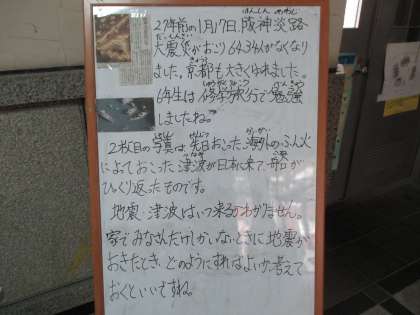 27年前の1月17日、阪神淡路
大震災がおこり6434人がなくなり
ました。京都も大きくゆれました。
6年生は修学旅行で勉強
しましたね。
2枚目の写真は先日おこった、海外のふん火
によっておこった津波が日本に来て、船が
ひっくり返ったものです。
地震・津波はいつ来るかわかりません。
家でみなさんだけしかいないときに地震が
おきたとき、どのようにすればよいか、考えて
おくといいですね。